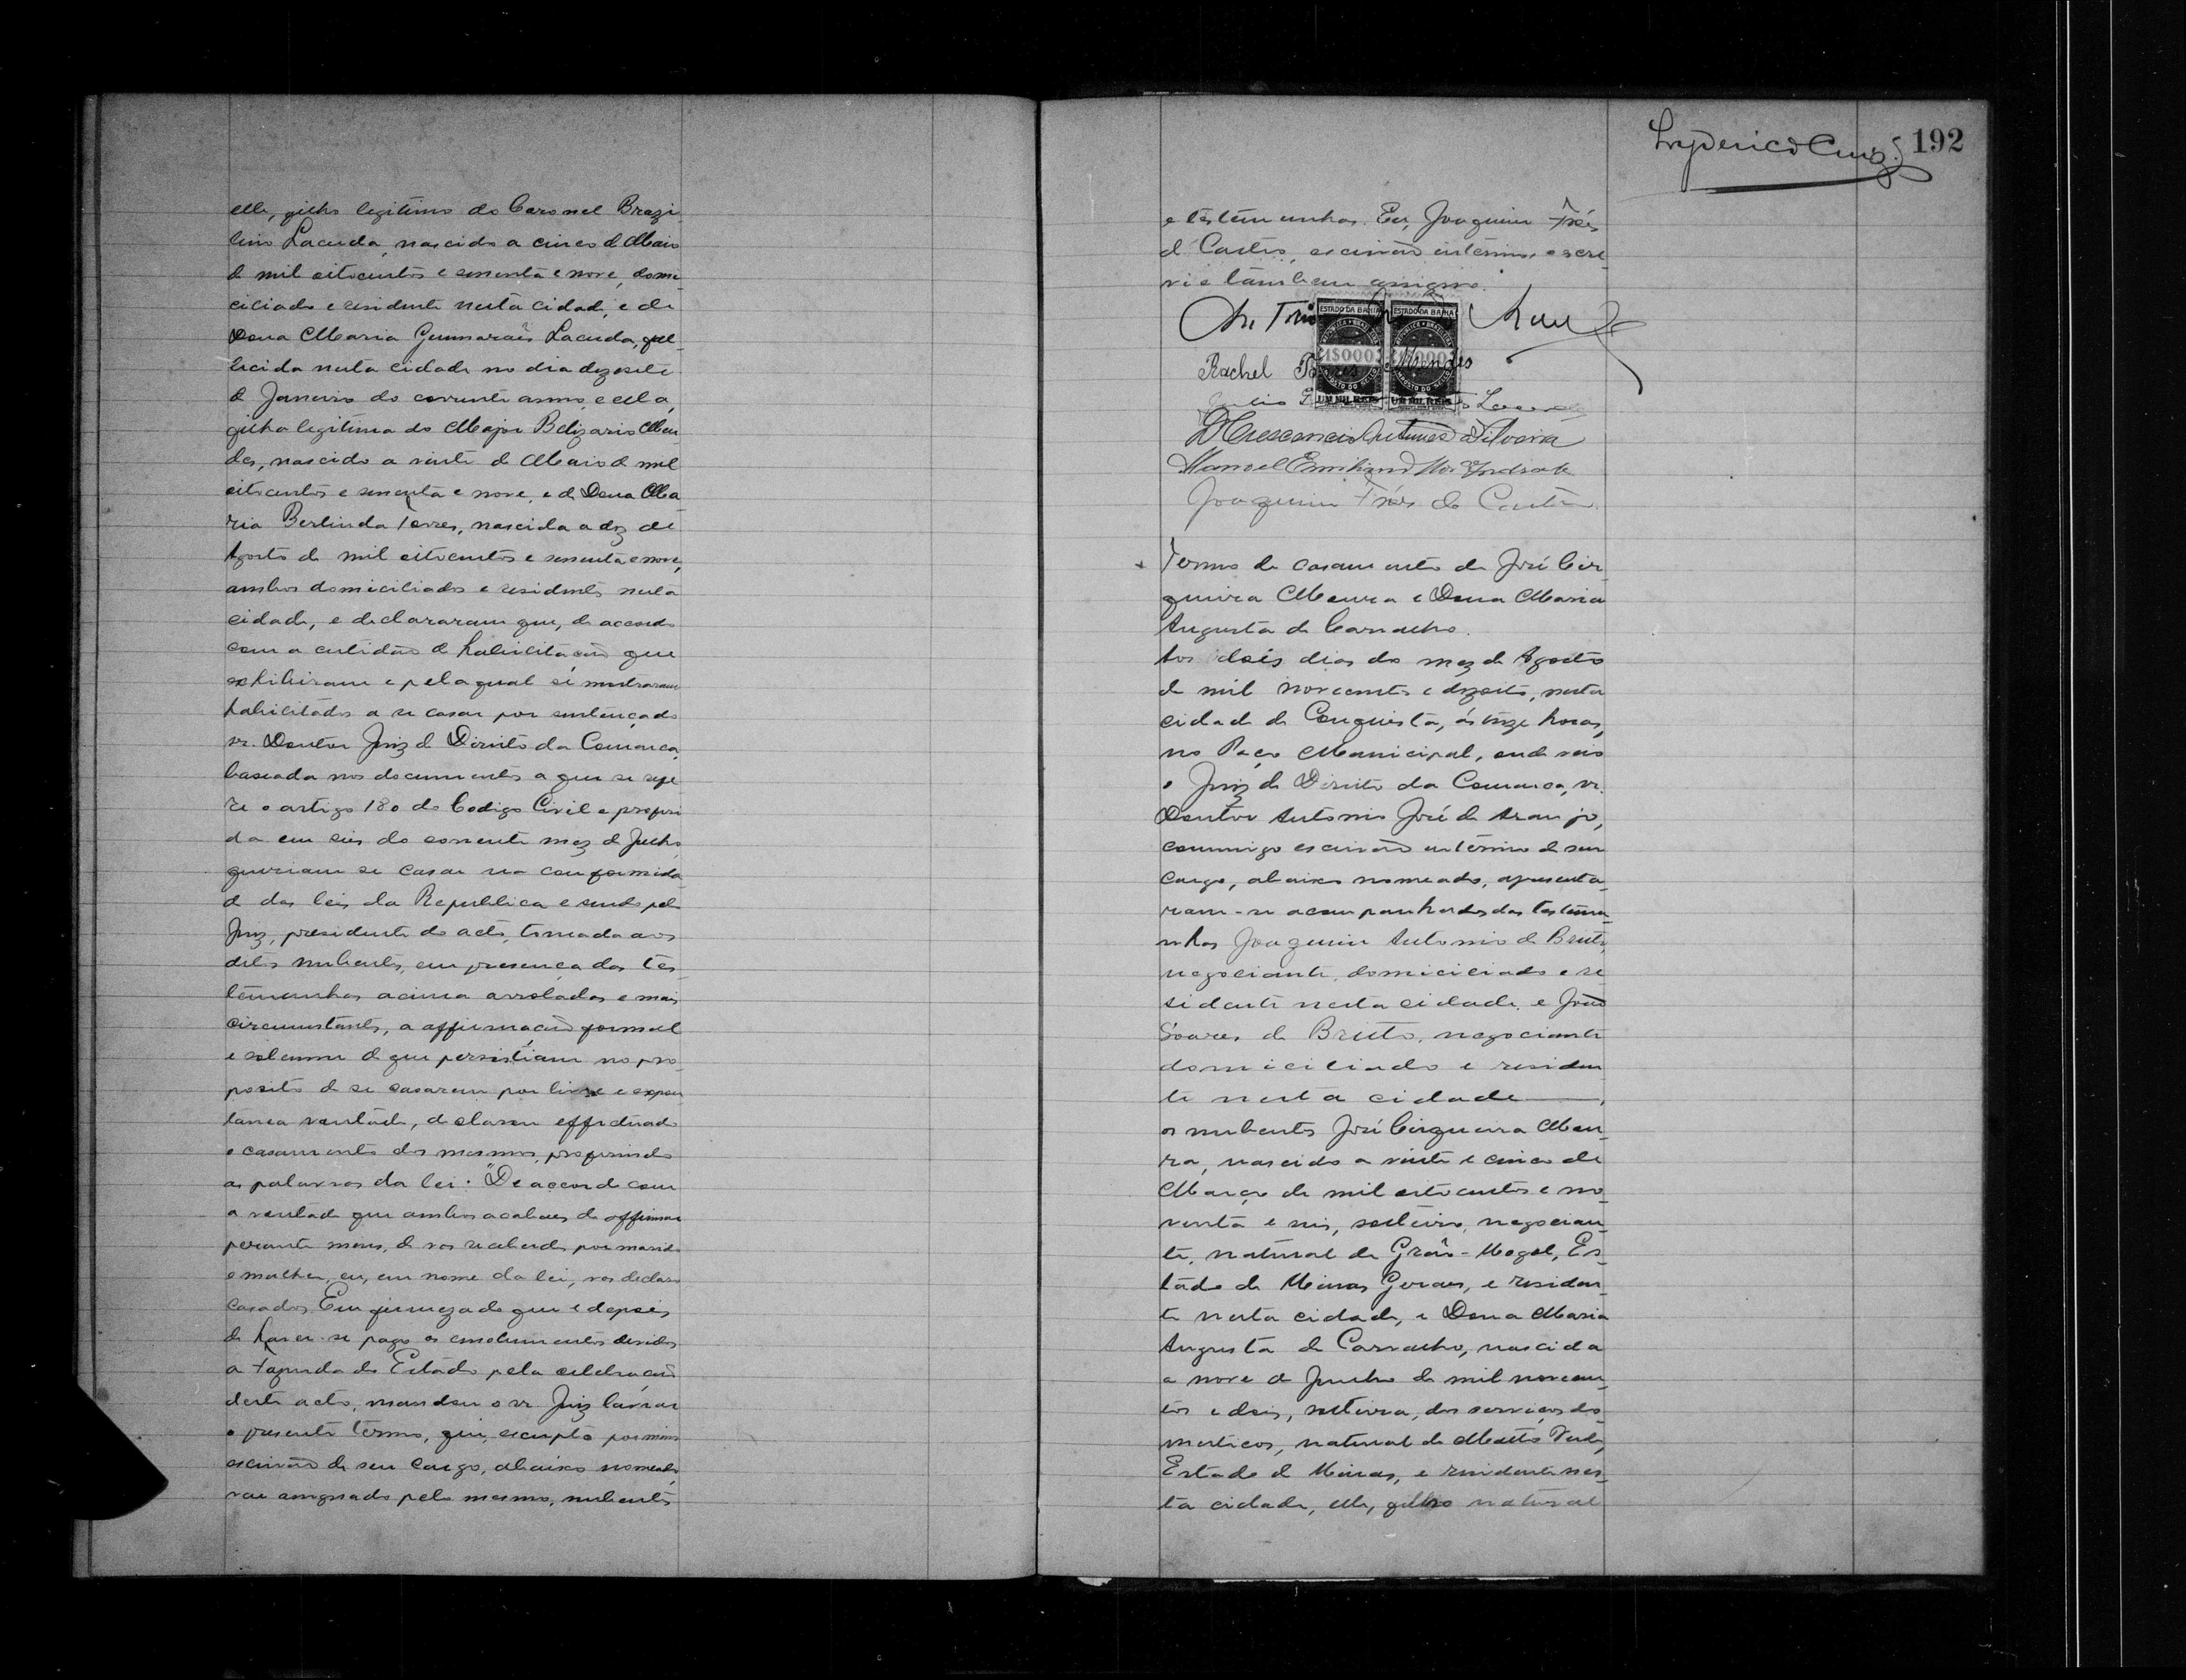 elle, filho legitimo do Coronel Brazi
lino Lacerda, nascido a cinco de Maio
de mil oitocentos e sessenta e nove, domi
ciliado e residente nesta cidade, e de
Dona Maria Guimarães Lacerda, fal-
lecida nesta cidade no dia dezesete
de Janeiro do corrente anno, e ella,
filha legitima do Major Belizario Men
des, nascido a vinte de Maio de mil
oitocentos e sessenta e nove, e de Dona Ma
ria Berlinda Torres, nascida a dez de
Agosto de mil oitocentos e sessenta e nove,
ambos domiciliados e residentes nesta
cidade, e declararam que, de accordo
com a certidão de habilitação que
exhibiram e pela qual se mostraram
habilitados a se casar por sentença do
sr. Doutor Juiz de Direito da Comarca,
baseada nos documentos a que se refe
re o artigo 180 do Codigo Civil e proferi
da em seis do corrente mez de Julho,
queriam se casar na conformida
de das leis da Republica e sendo pelo
Juiz, presidente do acto, tomada aos
ditos nubentes, em presença das tes
temunhas acima arroladas e mais
circumstantes, a affirmação formal
e solemne de que persistiam no pro
posito de se casarem por livre e expon
tanea vontade, declarou effectuado
o casamento dos mesmos, proferindo
as palavras da lei: "De accordo com
a vontade que ambos acabaes de affirmar
perante mim, de vos receberdes por marido
e mulher, eu, em nome da lei, vos declaro
casados. Em firmeza do que e depois
de haver-se pago os emolumentos devidos
a Fazenda do Estado pela celebração
deste acto, mandou o sr. Juiz lavrar
o presente termo, que, escripto por mim
escrivão de seu cargo, abaixo nomeado,
vae assignado pelo mesmo, nubentes
192
e testemunhas. Eu, Joaquim Fróes
de Castro, escrivão interino, escre-
vi e tambem assigno.
Rachel Torres Mendes
Crescencio Antunes da Silveira
Manoel Emiliano Andrade
Joaquim Fróes de Castro.
Termo de casamento de José Cir-
queira Moura e Dona Maria
Augusta de Carvalho.
Aos dois dias do mez de Agosto
de mil novecentos e dezoito, nesta
cidade de Conquista, ás onze horas,
no Paço Municipal, onde veio
o Juiz de Direito da Comarca, sr.
Doutor Antonio José de Araujo,
commigo escrivão interino de seu
cargo, abaixo nomeado, apresenta-
ram-se acompanhados das testemu-
nhas Joaquim Antonio de Britto,
negociante, domiciliado e re
sidente nesta cidade, e João
Soares de Britto, negociante
domiciliado e residen
te nesta cidade
os nubentes José Cirqueira Mou-
ra, nascido a vinte e cinco de
Março de mil oitocentos e no-
venta e seis, solteiro, negocian-
te, natural de Grão-Mogol, Es-
tado de Minas Geraes, e residen-
te nesta cidade, e Dona Maria
Augusta de Carvalho, nascida
a nove de Junho de mil novecen-
tos e dois, solteira, dos serviços do-
mesticos, natural de Matto Verde,
Estado de Minas, e residente nes-
ta cidade, elle, filho natural